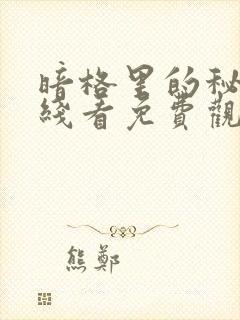 暗格里的秘
綫看免費觀
熊鄭